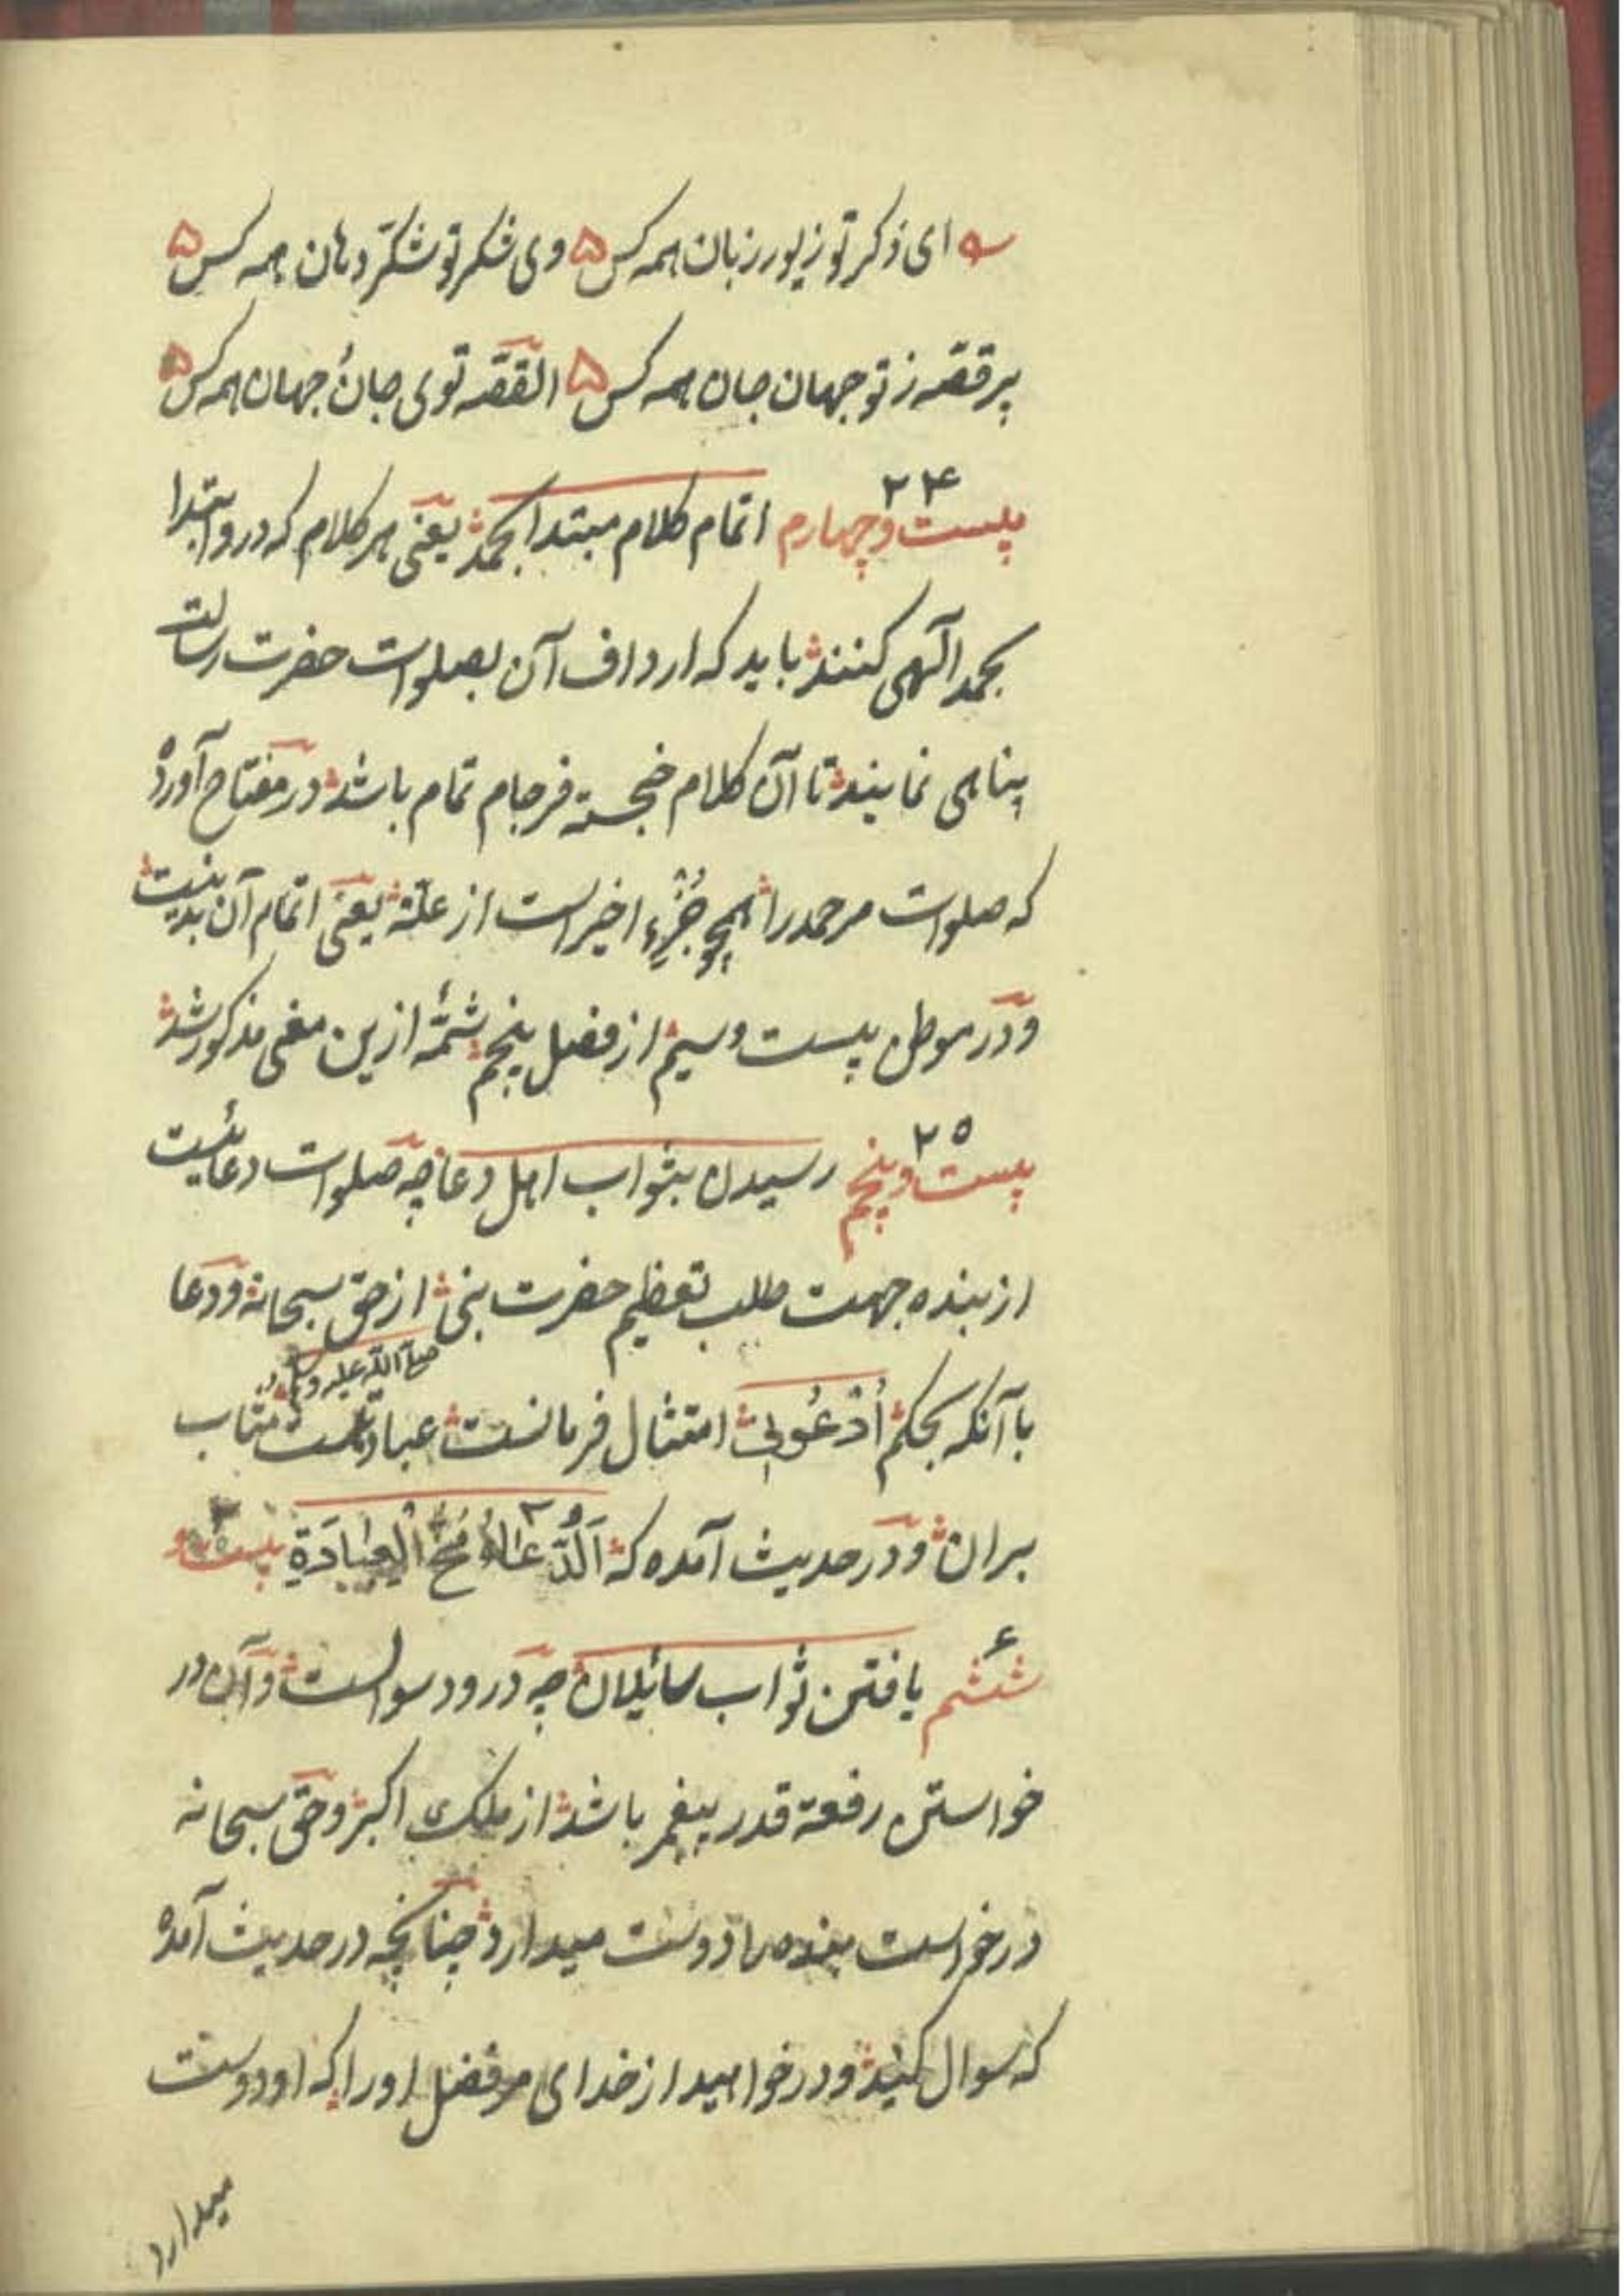 ای ذکر تو زیور زبان همه کس ۵ وی شکر تو شکّر دهان همه کس ۵
پر قصّه ز تو جهان جان همه کس ۵ القصّه توی جان جهان همه کس ۵
۲۴
بیست و چهارم اتمام کلام مبتدا بحمد یعنی هر کلام که درو ابتدا
بحمد آلهی کنند باید که ارداف آن بصلوات حضرت رسالت
پناهی نمایند تا آن کلام خجسته فرجام تمام باشد در مفتاح آورده
که صلوات مر حمد را همچو جُزءِ اخیر است از علّة یعنی اتمام آن بدینست
و در موطن بیست و سیم از فصل پنجم شمّهٔ ازین معنی مذکور شد
۲۵
بیست و پنجم رسیدن بثواب اهل دعا چه صلوات دعائیست
از بنده جهت طلب تعظیم حضرت نبی از حق سبحانه و دعا
صلی الله علیه وسلم
با آنکه بحکم اُدْعُونِی امتثال فرمانست عبادتست مثاب
بران و در حدیث آمده که اَلدُّعَاءُ مُخُّ الْعِبَادَةِ بیست و
۶
ششم یافتن ثواب سائیلان چه درود سوالست و آن در
خواستن رفعة قدر پیغمبر باشد از ملک اکبر و حق سبحانه
درخواست بنده را دوست میدارد چنانچه در حدیث آمده
که سوال کنید و درخواهید از خدای مر فضل او را که او دوست
میدارد